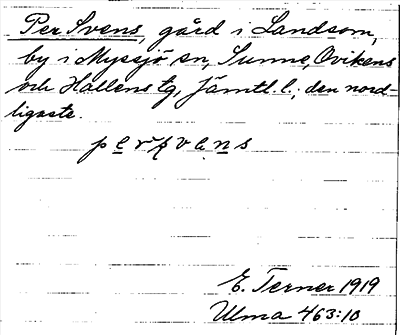 Per Svens, gård i Landsom,
by i Myssjö sn, Sunne, Ovikens
och Hallens tg, Jämtl. l.; den nord-
ligaste.
E. Terner 1919
Ulma 463:10